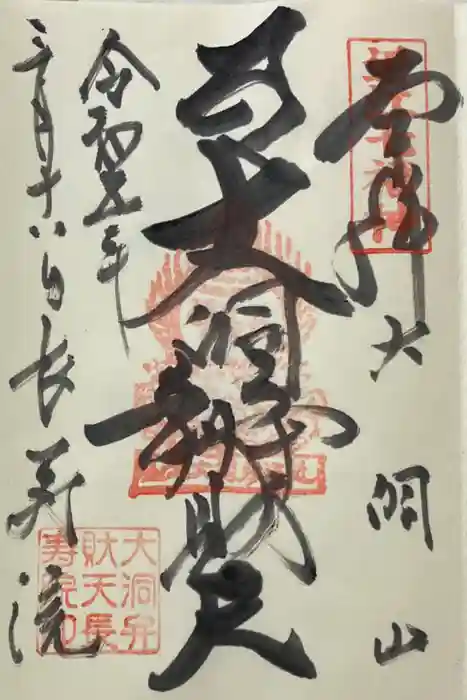 奉拝 大洞山
大洞辨財天
令和五年
三月十八日 長寿院
大洞弁
財天長
寿院印